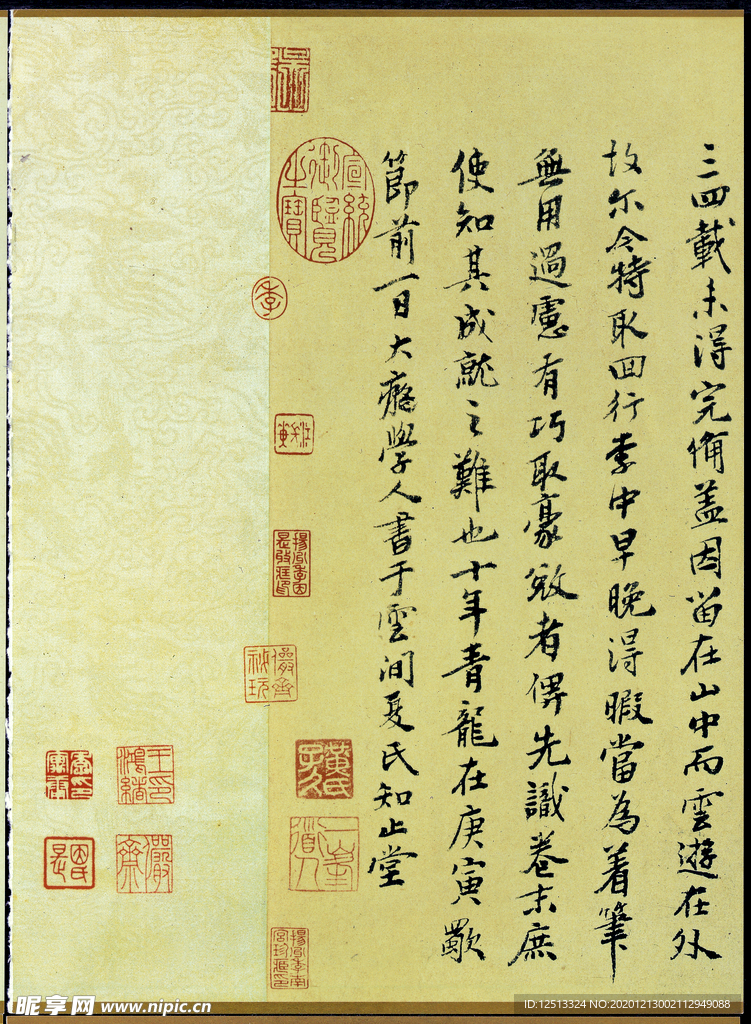 三四載未得完備蓋因留在山中而雲遊在外
故尔今特取回行李中早晚得暇當為着筆
無用過慮有巧取豪敚者俾先識卷末庶
使知其成就之難也十年青龍在庚寅歜
節前一日大癡學人書于雲間夏氏知止堂
宣統御覽之寶
季
黃氏子久
一峯道人
王鴻緒印
儼齋
儼齋秘玩
昵享网 www.nipic.cn
ID:12513324 NO:20201213002112949088